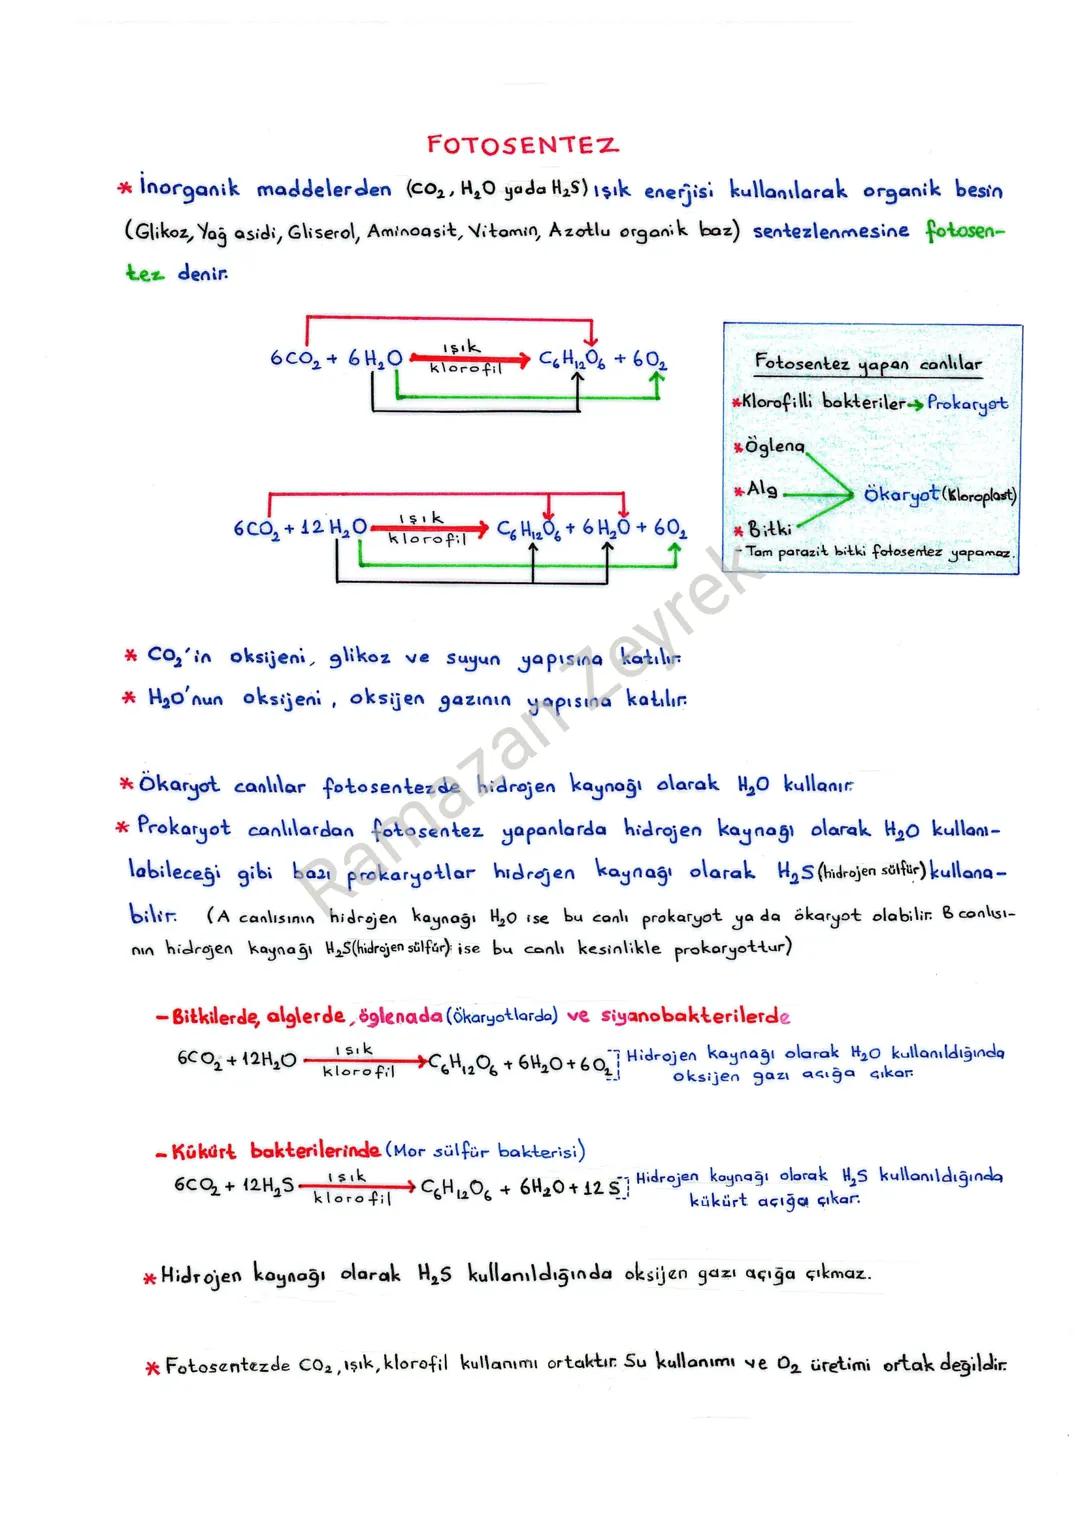 FOTOSENTEZ
* İnorganik maddelerden (CO₂, H₂O yada H₂S) ışık enerjisi kullanılarak organik besin
(Glikoz, Yağ asidi, Gliserol, Aminoasit, Vitamin, Azotlu organik baz) sentezlenmesine fotosen-
tez denir.
6CO₂ + 6H₂O ışık klorofil → C₆H₁₂O₆ + 6O₂
6CO₂ + 12H₂O ışık klorofil → C₆H₁₂O₆ + 6H₂O + 6O₂
Fotosentez yapan canlılar
* Klorofilli bakteriler → Prokaryot
* Öglena
* Alg
Ökaryot (Kloroplast)
* Bitki
- Tam parazit bitki fotosentez yapamaz.
* CO₂'in oksijeni, glikoz ve suyun yapısına katılır.
* H₂O'nun oksijeni, oksijen gazının yapısına katılır.
* Ökaryot canlılar fotosentezde hidrojen kaynağı olarak H₂O kullanır.
* Prokaryot canlılardan fotosentez yapanlarda hidrojen kaynağı olarak H₂O kullanı-
labileceği gibi bazı prokaryotlar hidrojen kaynağı olarak H₂S (hidrojen sülfür) kullana-
bilir. (A canlısının hidrojen kaynağı H₂O ise bu canlı prokaryot ya da ökaryot olabilir. B canlısı-
nın hidrojen kaynağı H₂S (hidrojen sülfür) ise bu canlı kesinlikle prokaryottur)
- Bitkilerde, alglerde, öglenada (Ökaryotlarda) ve siyanobakterilerde
6CO₂ + 12H₂O ışık klorofil → C₆H₁₂O₆ + 6H₂O + 6O₂ Hidrojen kaynağı olarak H₂O kullanıldığında
oksijen gazı açığa çıkar.
- Kükürt bakterilerinde (Mor sülfür bakterisi)
6CO₂ + 12H₂S ışık klorofil → C₆H₁₂O₆ + 6H₂O + 12S Hidrojen kaynağı olarak H₂S kullanıldığında
kükürt açığa çıkar.
* Hidrojen kaynağı olarak H₂S kullanıldığında oksijen gazı açığa çıkmaz.
* Fotosentezde CO₂, ışık, klorofil kullanımı ortaktır. Su kullanımı ve O₂ üretimi ortak değildir.
Ramazan Zeyrek